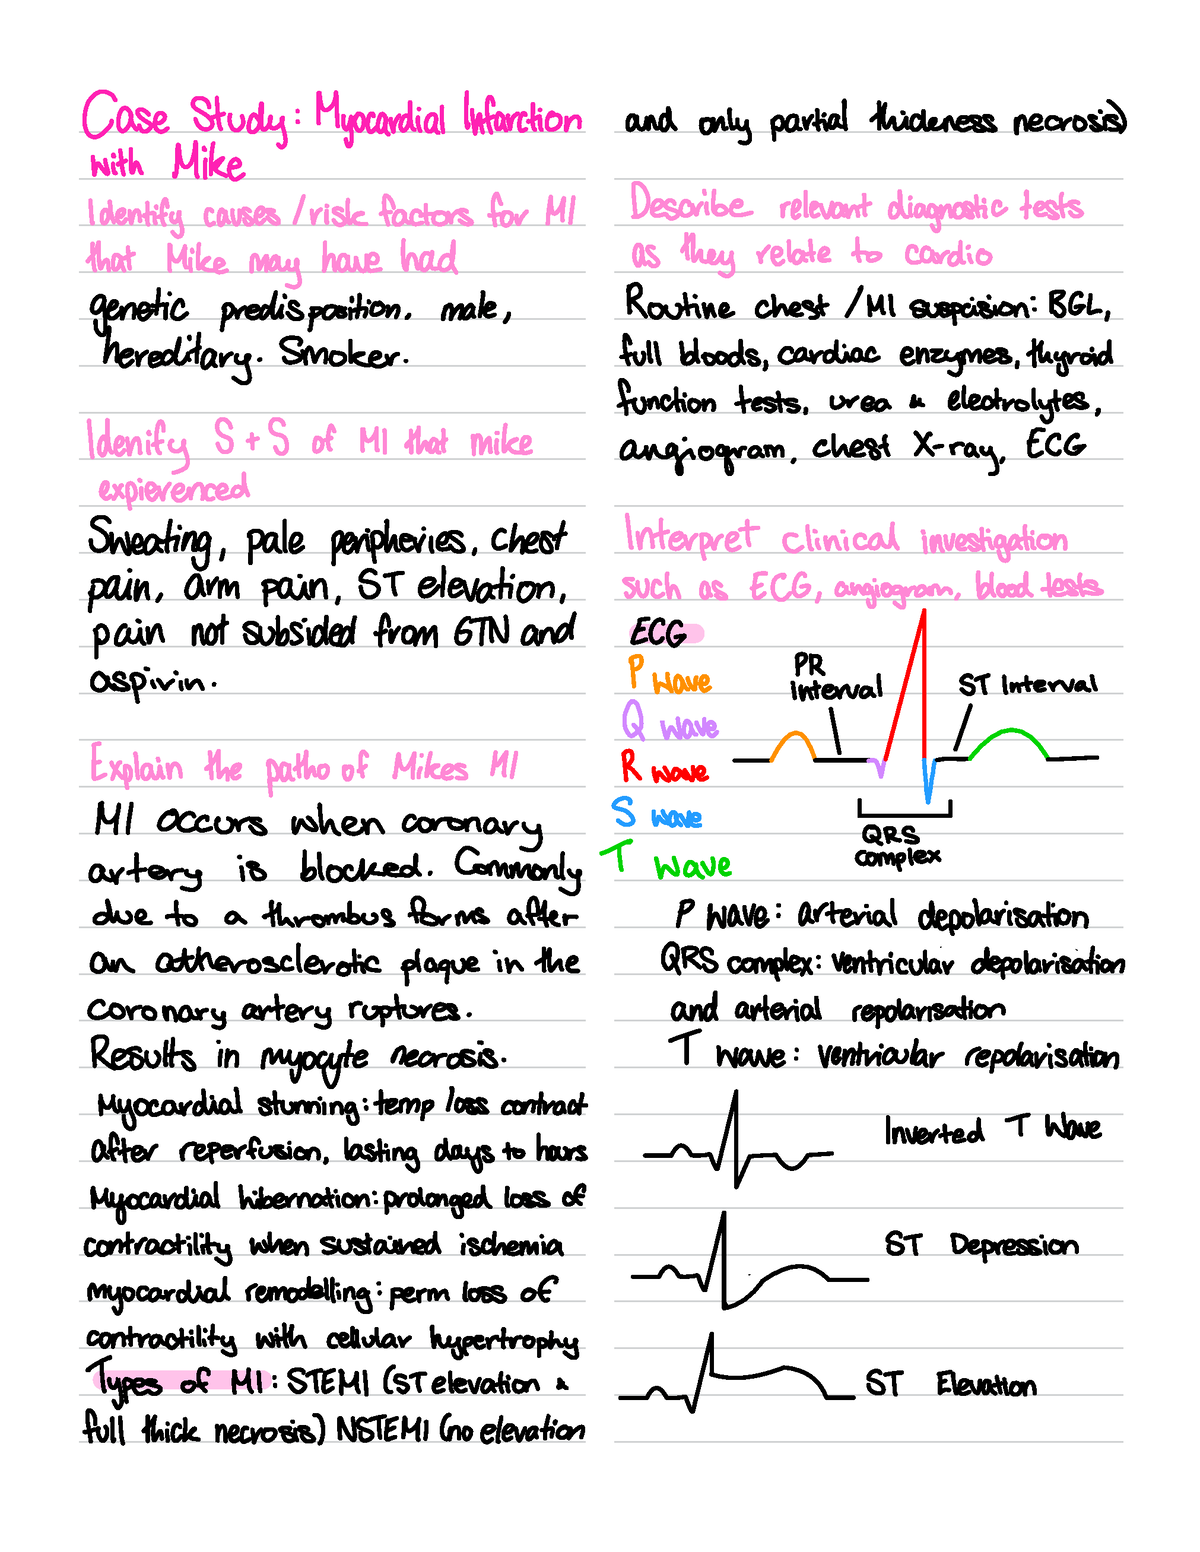 Case Study: Myocardial Infarction
with Mike
Identify causes/risk factors for MI
that Mike may have had
genetic predisposition. male,
hereditary. Smoker.
Idenify S+S of MI that mike
expierenced
Sweating, pale peripheries, chest
pain, arm pain, ST elevation,
pain not subsided from GTN and
aspirin.
Explain the patho of Mikes MI
MI occurs when coronary
artery is blocked. Commonly
due to a thrombus forms after
an atherosclerotic plaque in the
coronary artery ruptures.
Results in myocyte necrosis.
Myocardial stunning: temp loss contract
after reperfusion, lasting days to hours
Myocardial hibernation: prolonged loss of
contractility when sustained ischemia
myocardial remodelling: perm loss of
contractility with cellular hypertrophy
Types of MI: STEMI (ST elevation &
full thick necrosis) NSTEMI (no elevation
and only partial thickness necrosis)
Describe relevant diagnostic tests
as they relate to cardio
Routine chest/MI suspcision: BGL,
full bloods, cardiac enzymes, thyroid
function tests, urea & electrolytes,
angiogram, chest X-ray, ECG
Interpret clinical investigation
such as ECG, angiogram, blood tests
ECG
P wave
Q wave
R wave
S wave
T wave
PR
interval
ST Interval
QRS
complex
P wave: arterial depolarisation
QRS complex: ventricular depolarisation
and arterial repolarisation
T wave: ventricular repolarisation
Inverted T Wave
ST Depression
ST Elevation